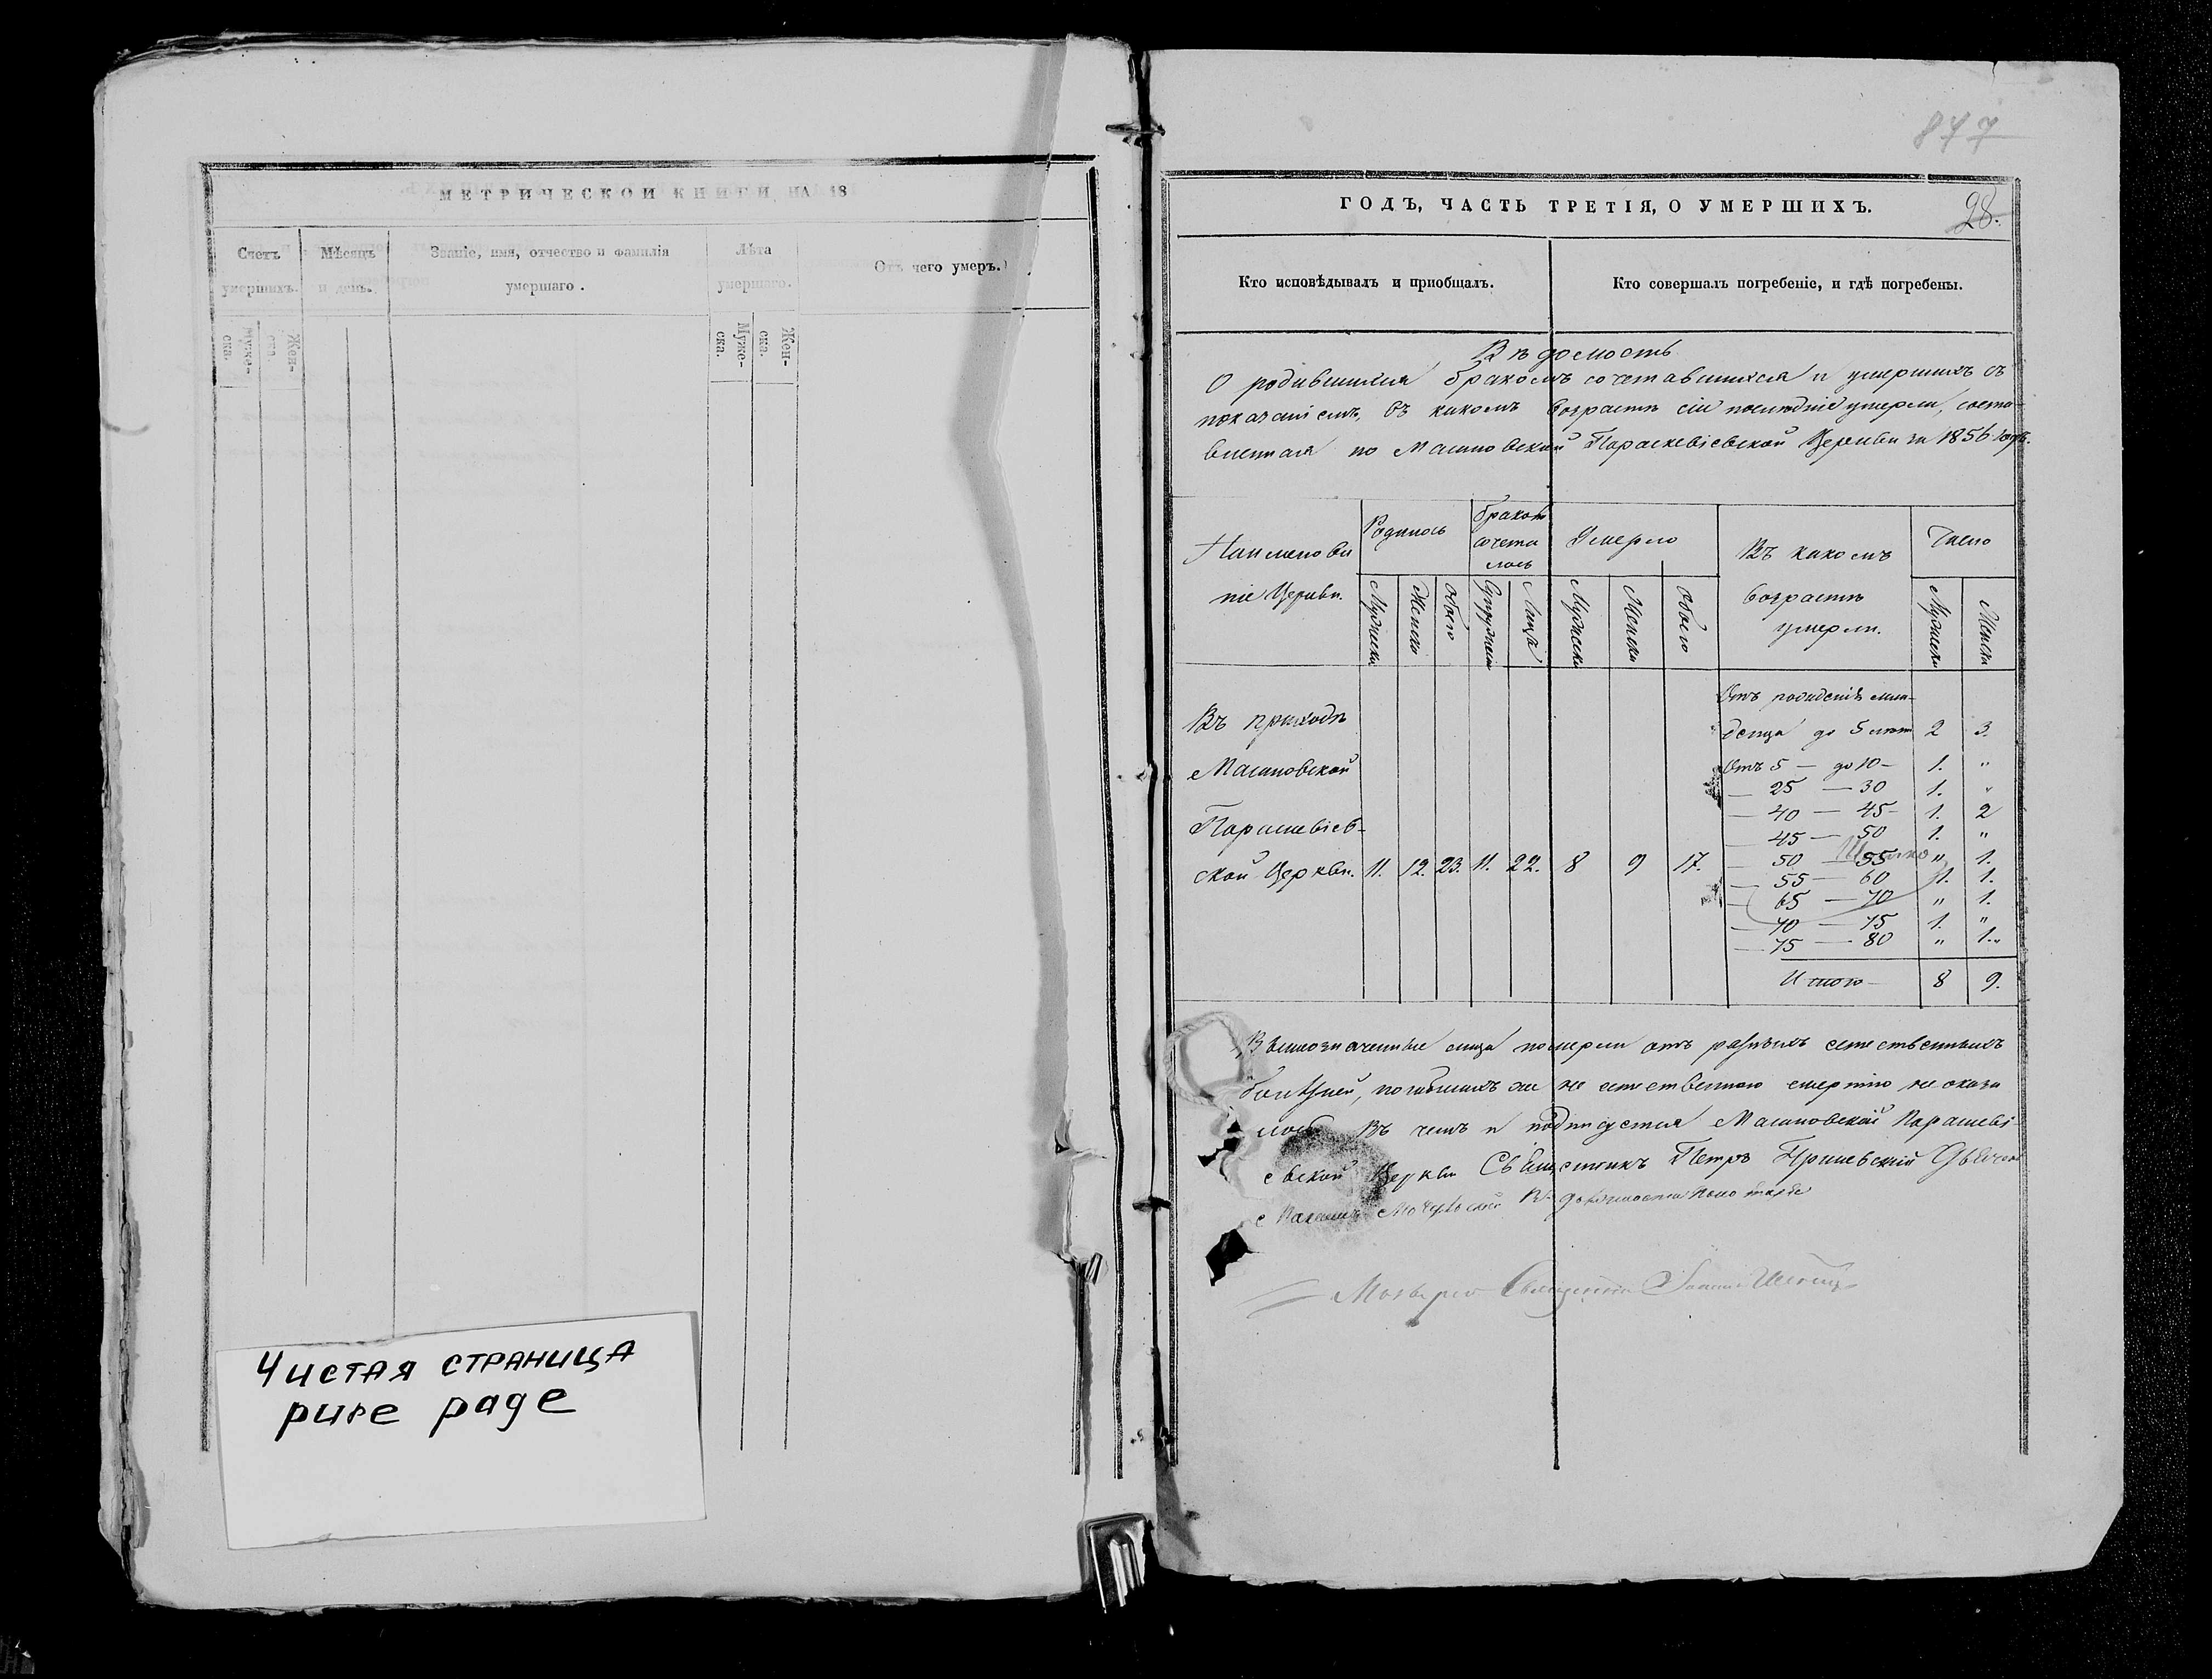 МЕТРИЧЕСКОЙ КНИГИ, НА 18
Счетъ умершихъ.
Мѣсяцъ и день.
Званіе, имя, отчество и фамилія умершаго.
Лѣта умершаго.
Отъ чего умеръ.
Муже-ска.
Жен-ска.
Муже-ска.
Жен-ска.
Чистая страница
pure page
847
28.
ГОДЪ, ЧАСТЬ ТРЕТІЯ, О УМЕРШИХЪ.
Кто исповѣдывалъ и пріобщалъ.
Кто совершалъ погребеніе, и гдѣ погребены.
Вѣдомость
О родившихся бракомъ сочетавшихся и умершихъ съ
показаніемъ, въ какомъ возрастѣ сіи послѣдніе умерли, соста-
вленная по Параскевіевской Церкви за 1856 годъ.
Наименова
ніе Церкви.
Родилось
Бракомъ
сочета
лось
Умерло
Въ какомъ
возрастѣ
умерли.
Число
Мужеска
Женска
Обоего
Супружествъ
Лицъ
Мужеска
Женска
Обоего
Мужеска
Женска
Отъ рожденія мла-
денца до 5 лѣтъ 2 3.
Отъ 5 — до 10 — 1. "
— 25 — 30 1. "
— 40 — 45 — 1. 2
— 45 — 50 1. "
— 50 — 55 " 1.
— 55 — 60 1. 1.
— 65 — 70 " 1.
— 70 — 75 1. "
— 75 — 80 " 1.
Итого — 8 9.
Въ приходѣ
Параскевіев-
ской Церкви. 11. 12. 23. 11. 22. 8 9 17.
Вышеозначенные лица померли отъ разныхъ естественныхъ
болѣзней, погибшихъ же не естественною смертію не оказа
лось Въ чемъ и подписуемся
евской Церкви Священникъ Петръ
Въ должности Пономаря